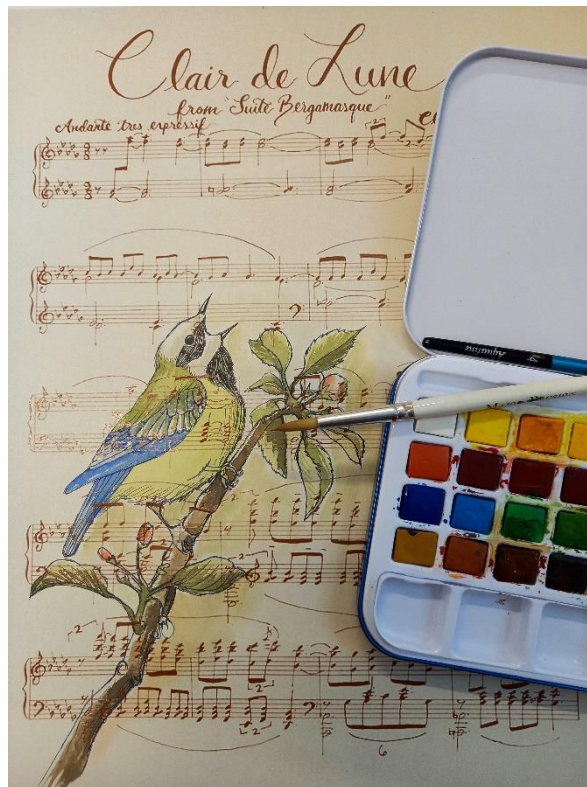 Clair de Lune
from "Suite Bergamasque"
Andante très expressif
Aquafine